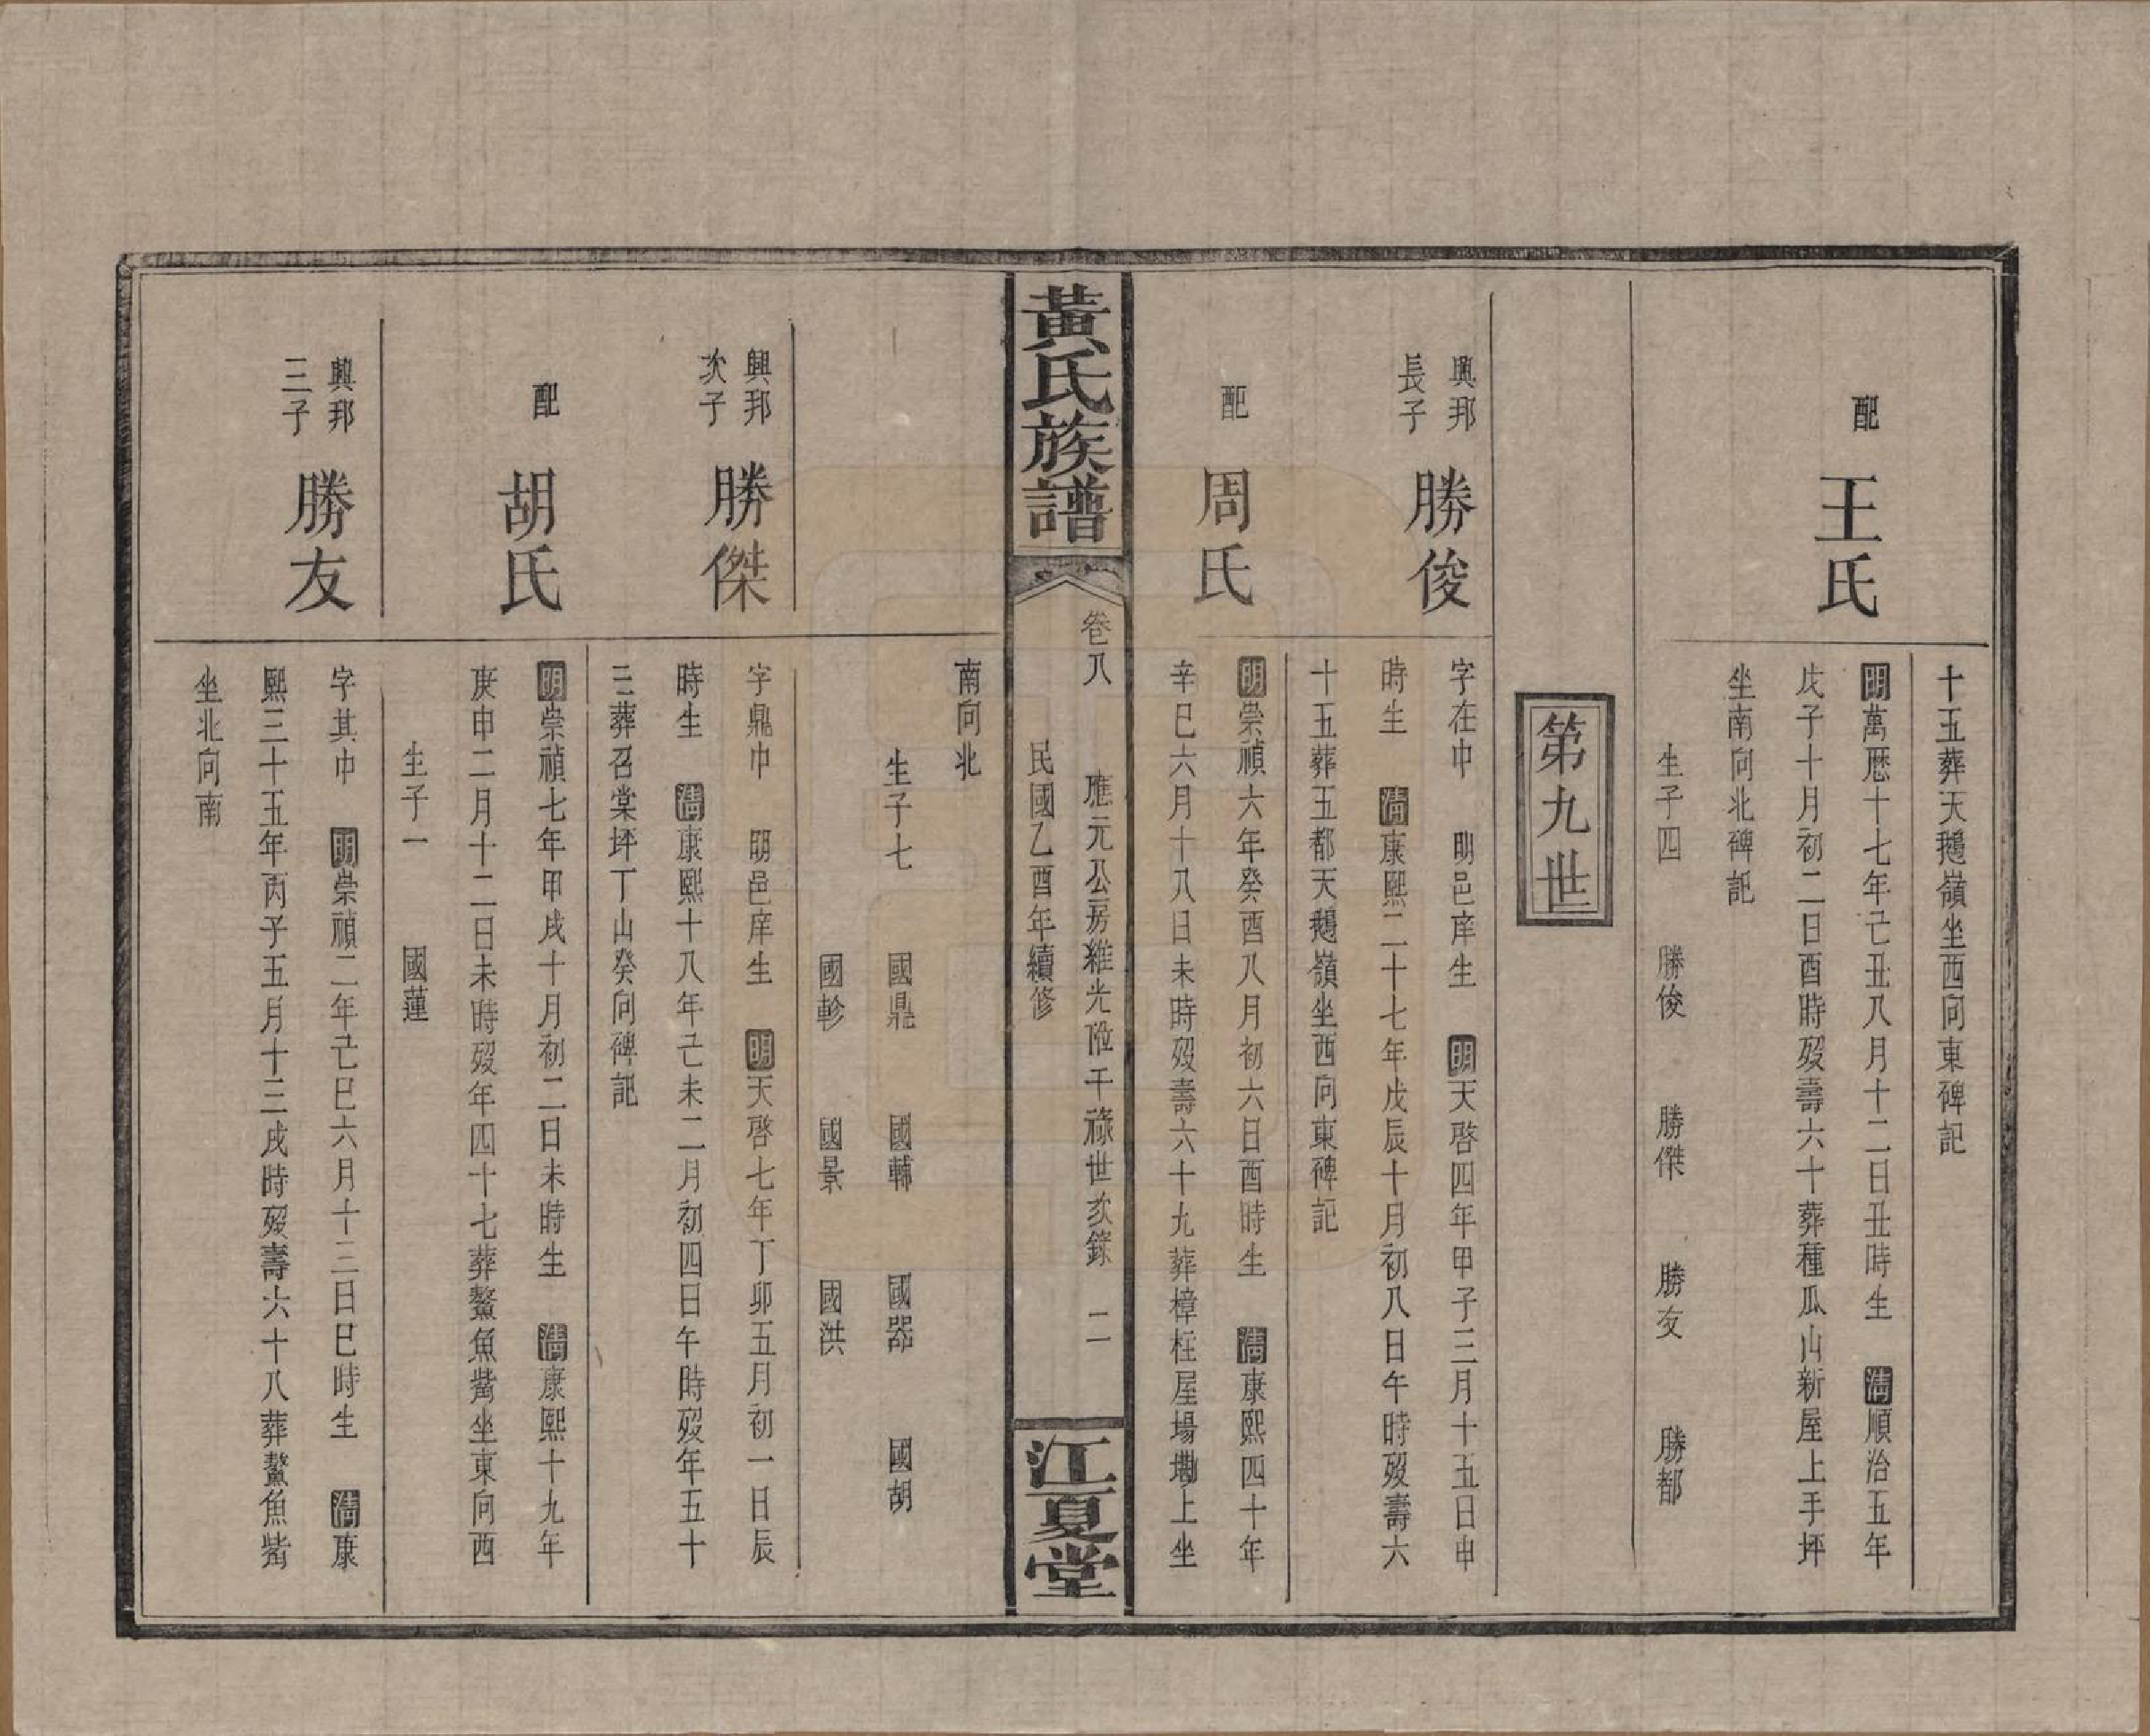 十五葬天鵝嶺坐西向東碑記
配
王氏
明萬曆十七年己丑八月十二日丑時生　清順治五年
戊子十月初二日酉時歿壽六十葬種瓜山新屋上手坪
坐南向北碑記
生子四　勝俊　勝傑　勝友　勝都
第九世
興邦
長子
勝俊
字在中　明邑庠生　明天啓四年甲子三月十五日申
時生　清康熙二十七年戊辰十月初八日午時歿壽六
十五葬五都天鵝嶺坐西向東碑記
配
周氏
明崇禎六年癸酉八月初六日酉時生　清康熙四十年
辛巳六月十八日未時歿壽六十九葬樟枉屋場墈上坐
黃氏族譜
卷八　應元公房維光位千祿世次錄　二
民國乙酉年續修
江夏堂
南向北
生子七　國鼎　國輔　國器　國胡
國軫　國景　國洪
興邦
次子
勝傑
字鼎中　明邑庠生　明天啓七年丁卯五月初一日辰
時生　清康熙十八年己未二月初四日午時歿年五十
三葬召棠坪丁山癸向碑記
配
胡氏
明崇禎七年甲戌十月初二日未時生　清康熙十九年
庚申二月十二日未時歿年四十七葬鰲魚嘴坐東向西
生子一　國蓮
興邦
三子
勝友
字其中　明崇禎二年己巳六月十三日巳時生　清康
熙三十五年丙子五月十三戌時歿壽六十八葬鰲魚嘴
坐北向南